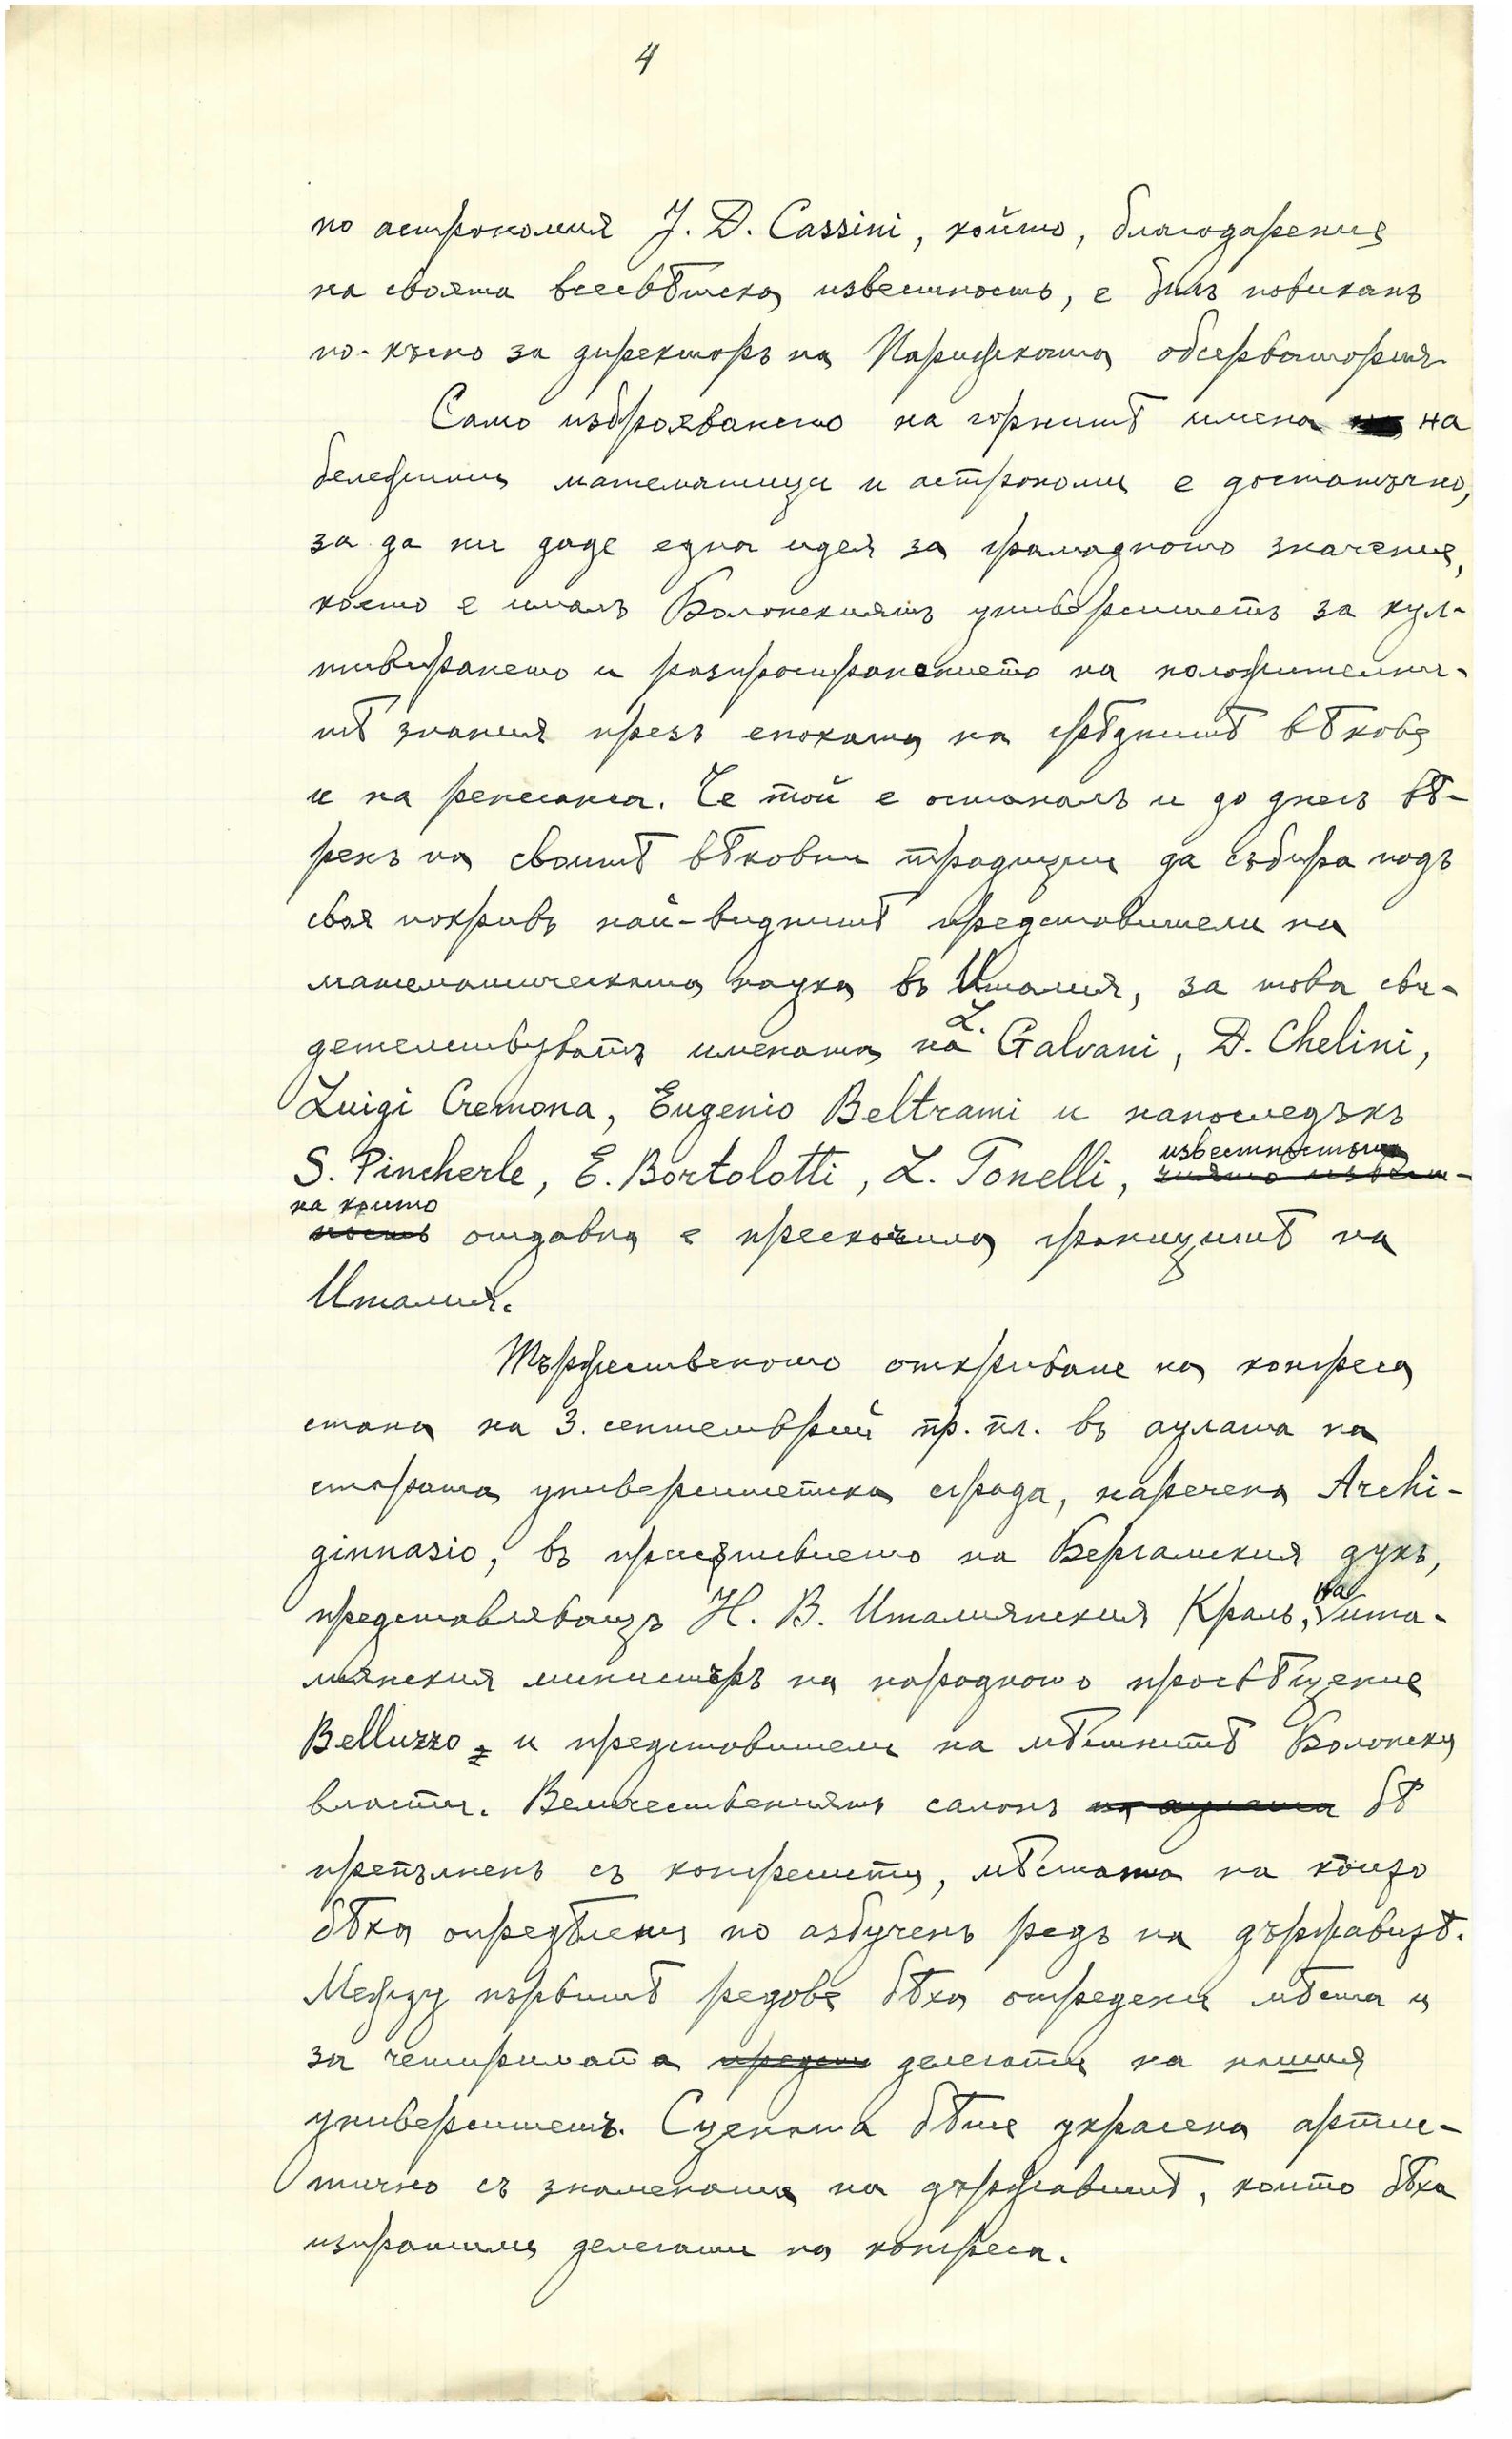 4
по астрономия J. D. Cassini, който, благодарение
на своята всесвѣтска известность, е билъ повиканъ
по-късно за директоръ на Парижката обсерватория.
Само изброяването на горнитѣ имена на
бележити математици и астрономи е достатъчно,
за да ни даде една идея за грамадното значение,
което е ималъ Болонскиятъ университетъ за кул-
тивирането и разпространението на положителни-
тѣ знания презъ епохата на срѣднитѣ вѣкове
и на ренесанса. Че той е останалъ и до днесъ вѣ-
ренъ на своитѣ вѣковни традиции да събира подъ
своя покривъ най-виднитѣ представители на
математическата наука въ Италия, за това сви-
детелствуватъ имената на L. Galvani, D. Chelini,
Luigi Cremona, Eugenio Beltrami и напоследъкъ
S. Pincherle, E. Bortolotti, L. Tonelli, известността
чиято извест-
на които
ность отдавна е прескочила границитѣ на
Италия.
Тържественото откриване на конгреса
стана на 3. септемврий пр. пл. въ аулата на
старата университетска сграда, наречена Archi-
ginnasio, въ присѫтствието на Бергамския дукъ,
представляващъ Н. В. Италиянския Краль, на ита-
лиянския министъръ на народното просвѣщение
Belluzzo и представители на мѣстнитѣ Болонски
власти. Величествениятъ салонъ на аулата бѣ
препълненъ съ конгресисти, мѣстата на които
бѣха опредѣлени по азбученъ редъ на държавитѣ.
Между първитѣ редове бѣха отредени мѣста и
за четиримата делегати на нашия
университетъ. Сцената бѣше украсена артис-
тично съ знамената на държавитѣ, които бѣха
изпратили делегати на конгреса.